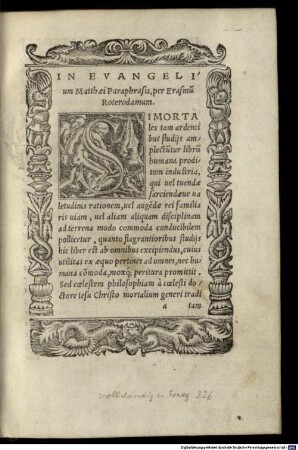 IN EVANGELI⸗
um Matthæi Paraphrasis, per Erasmũ
Roterodamum.
SI MORTA
les tam ardenti
bus studijs am
plectũtur librũ
humana prodi
tum industria,
qui uel tuendæ
sarciendæue ua
letudinis rationem, uel augẽdæ rei familia
ris uiam, uel aliam aliquam disciplinam
ad terrena modo commoda conducibilem
pollicetur, quanto flagrantioribus studijs
hic liber est ab omnibus excipiendus, cuius
utilitas ex æquo pertinet ad omnes, nec hu
mana cõmoda, moxq; peritura promittit.
Sed cœlestem philosophiam à cœlesti do
ctore Iesu Christo mortalium generi tradi
a tam
326